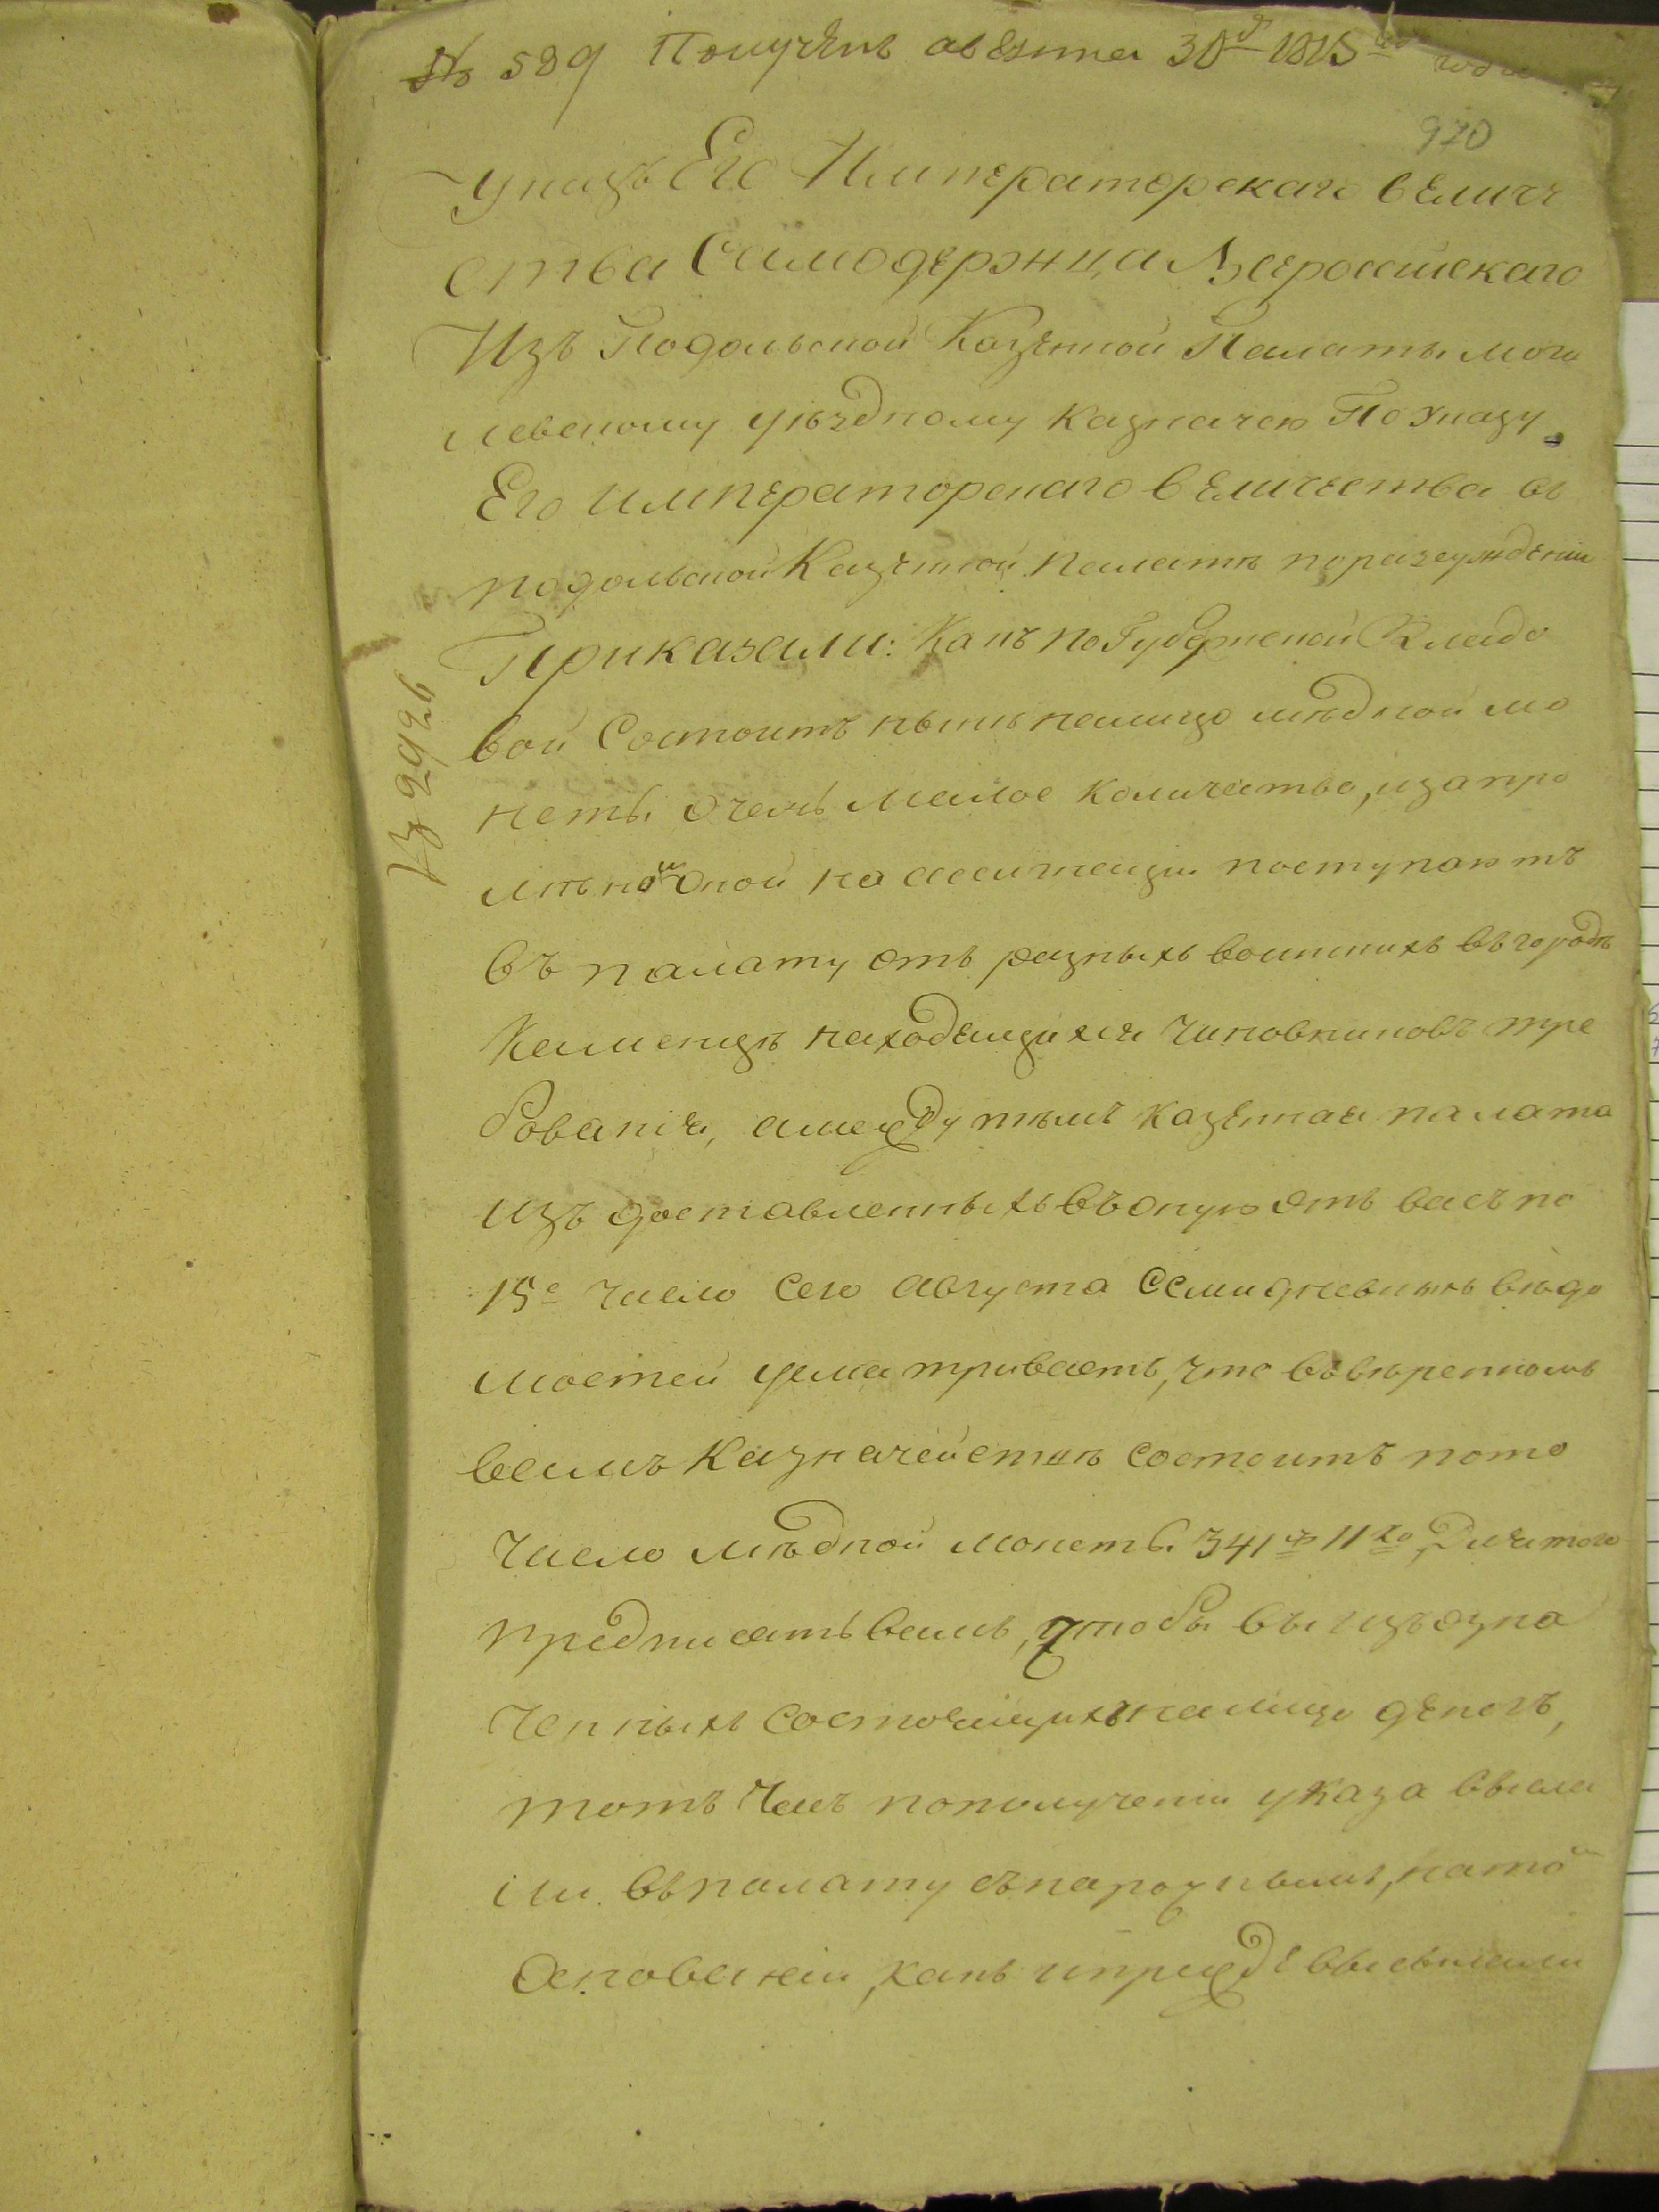 № 589 Полученъ августа 30д 1815го года
970
Указъ Его Императорскаго Величе
ства Самодержца Всероссийскаго
Изъ Подольской Казенной Палаты моги
левскому уѣздному казначею По указу
Его императорскаго величества въ
подольской Казенной палатѣ по разсуждении
Приказали: Какъ по Губернской Кладо
вой состоитъ нынѣ налицо мѣдной мо
неты очень малое количество, и за про
мѣномъ оной на ассигнации поступаютъ
въ палату отъ разныхъ воинскихъ въ городѣ
Каменцѣ находящихся чиновниковъ тре
бования, а между тѣмъ казенная палата
изъ доставленныхъ въ оную отъ васъ по
15е число сего августа семидневныхъ вѣдо
мостей усматриваетъ, что въ ввѣренномъ
вамъ Казначействѣ состоитъ по то
число мѣдной монеты 341 р 11 ко, Для того
предписать вамъ, чтобы вы изъ озна
ченныхъ состоящихъ налицо денегъ,
тотъ часъ по получении указа высла
ли въ палату съ нарочнымъ, на томъ
основании, какъ и прежде высылали
№ 2926